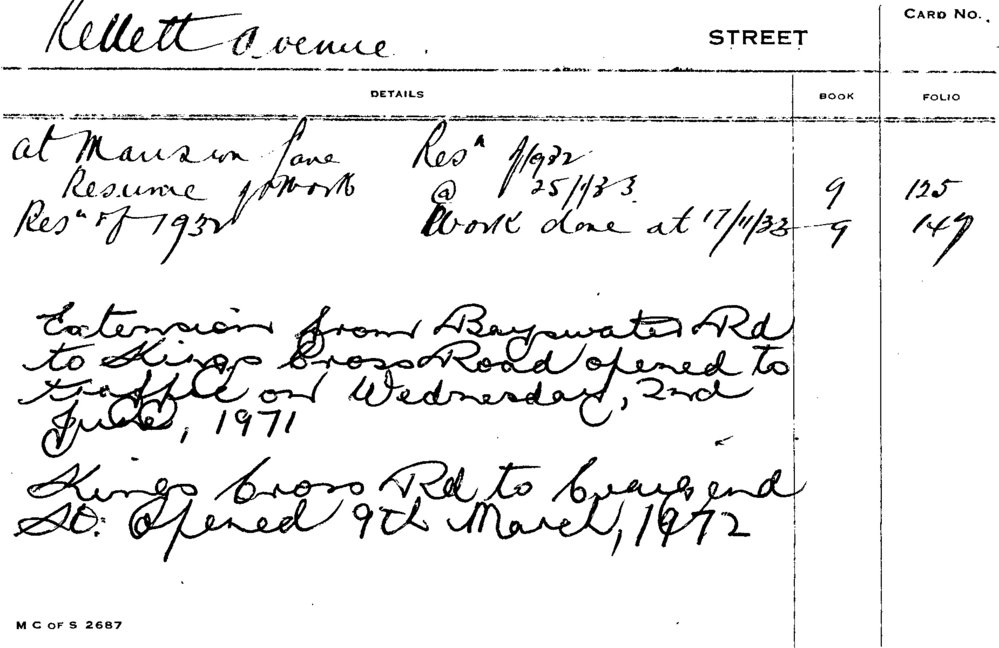 Kellett Avenue. STREET CARD No.
DETAILS BOOK FOLIO
at Manson Lane Resⁿ of 1932
Resume of Work @ 25/1/33. 9 125
Resⁿ of 1932 Work done at 17/11/33 9 147
Extension from Bayswater Rd
to Kings Cross Road opened to
traffic on Wednesday, 2nd
June, 1971
Kings Cross Rd to Craigend
St: Opened 9th March, 1972
M C OF S 2687